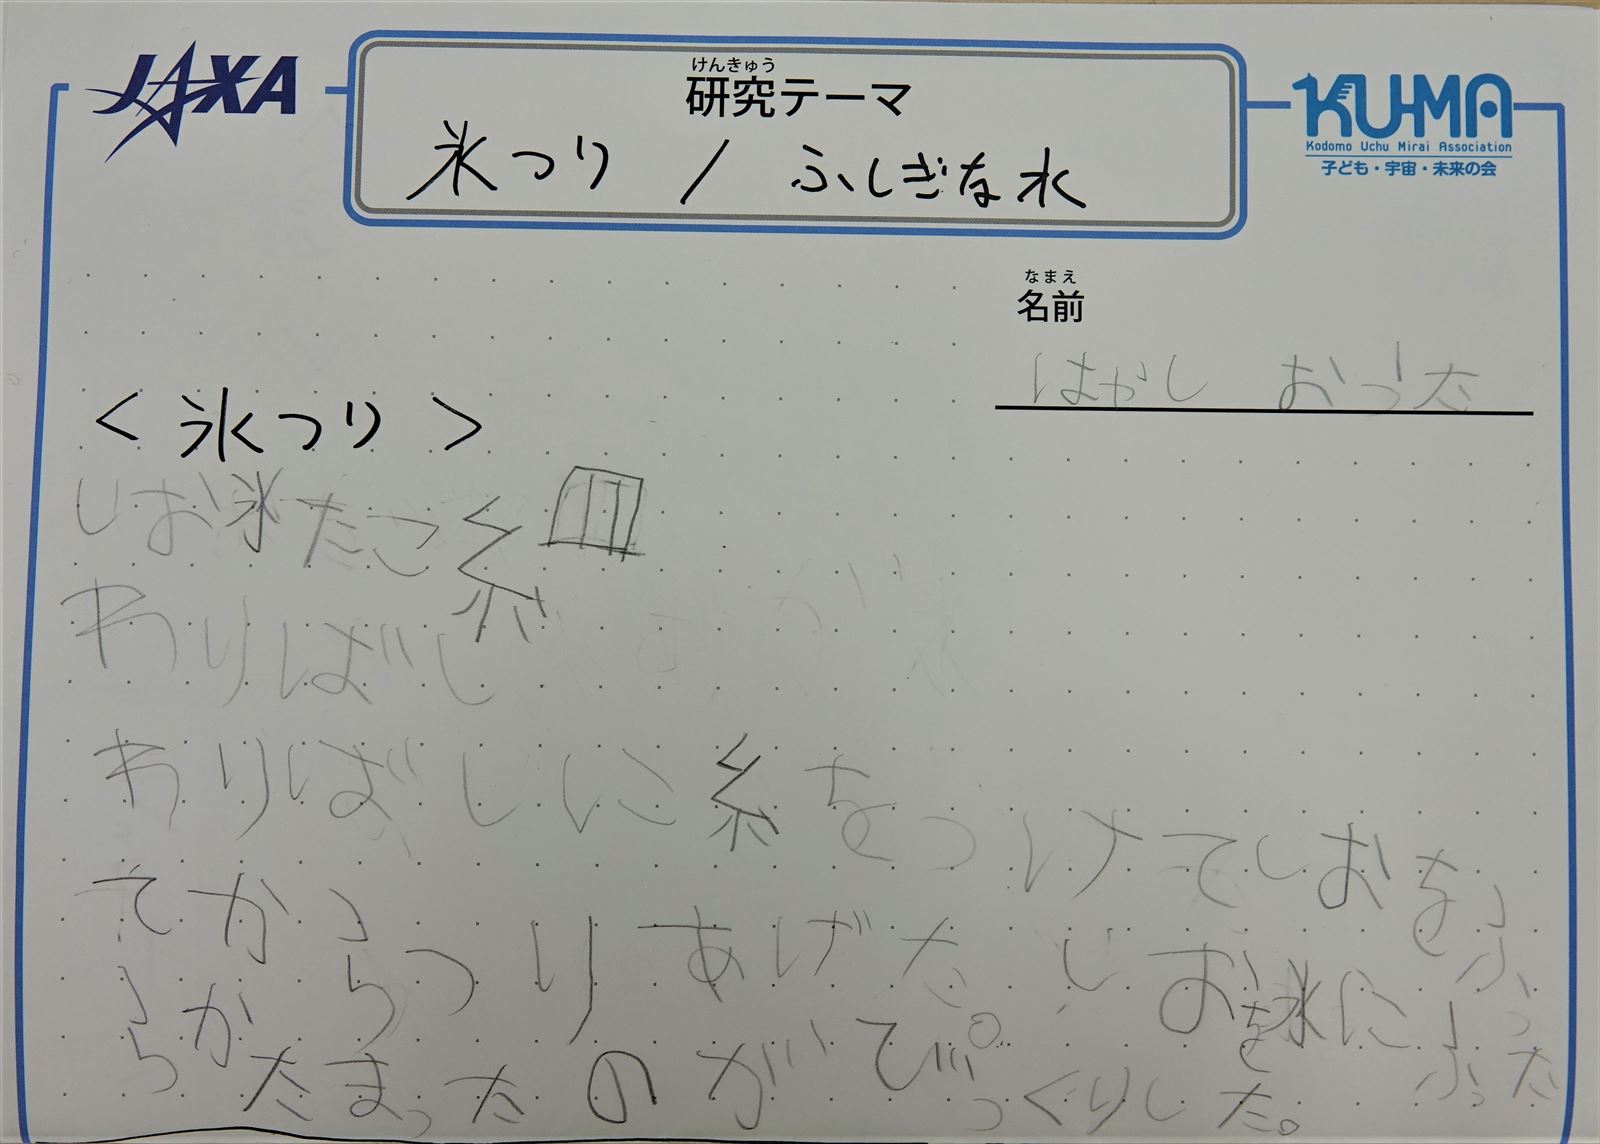 JAXA
けんきゅう
研究テーマ
氷つり / ふしぎな水
KU-MA
Kodomo Uchu Mirai Association
子ども・宇宙・未来の会
なまえ
名前
はやし おう太
<氷つり>
しお氷たこ糸皿
わりばし
わりばしに糸をつけてしおをふっ
てからつりあげた。しおを氷にふった
らかたまったのがびっくりした。